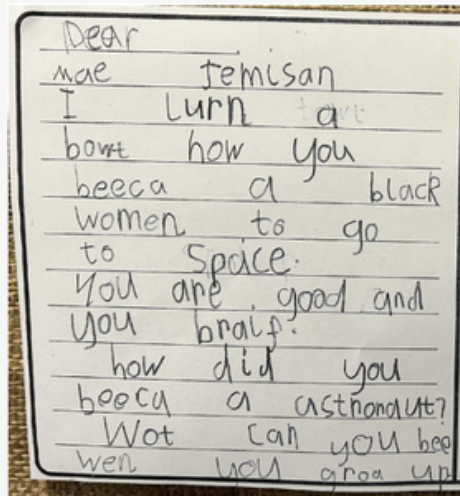 Dear
mae Jemisan
I lurn a
bowt how you
beeca a black
women to go
to space.
You are good and
you braif.
how did you
beeca a astronaut?
Wot can you bee
wen you groa up